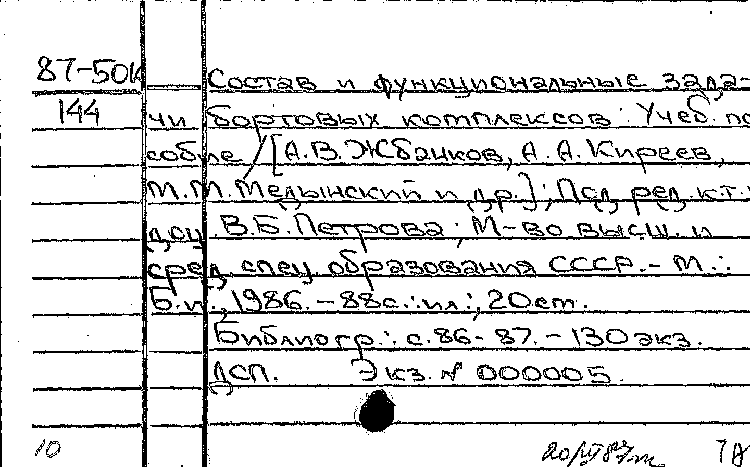 87-50
144
Состав и функциональные зада-
чи бортовых комплексов: Учеб. по
собие / [А.В. Жбанков, А.А. Киреев,
М.М. Медынский и др.]; Под ред. к.т.
доц. В.Б. Петрова; М-во высш. и
сред. спец. образования СССР. - М.:
Б.и., 1986. - 88с.: ил.; 20см.
Библиогр.: с. 86-87. - 130 экз.
ДСП. Экз. № 000005.
10